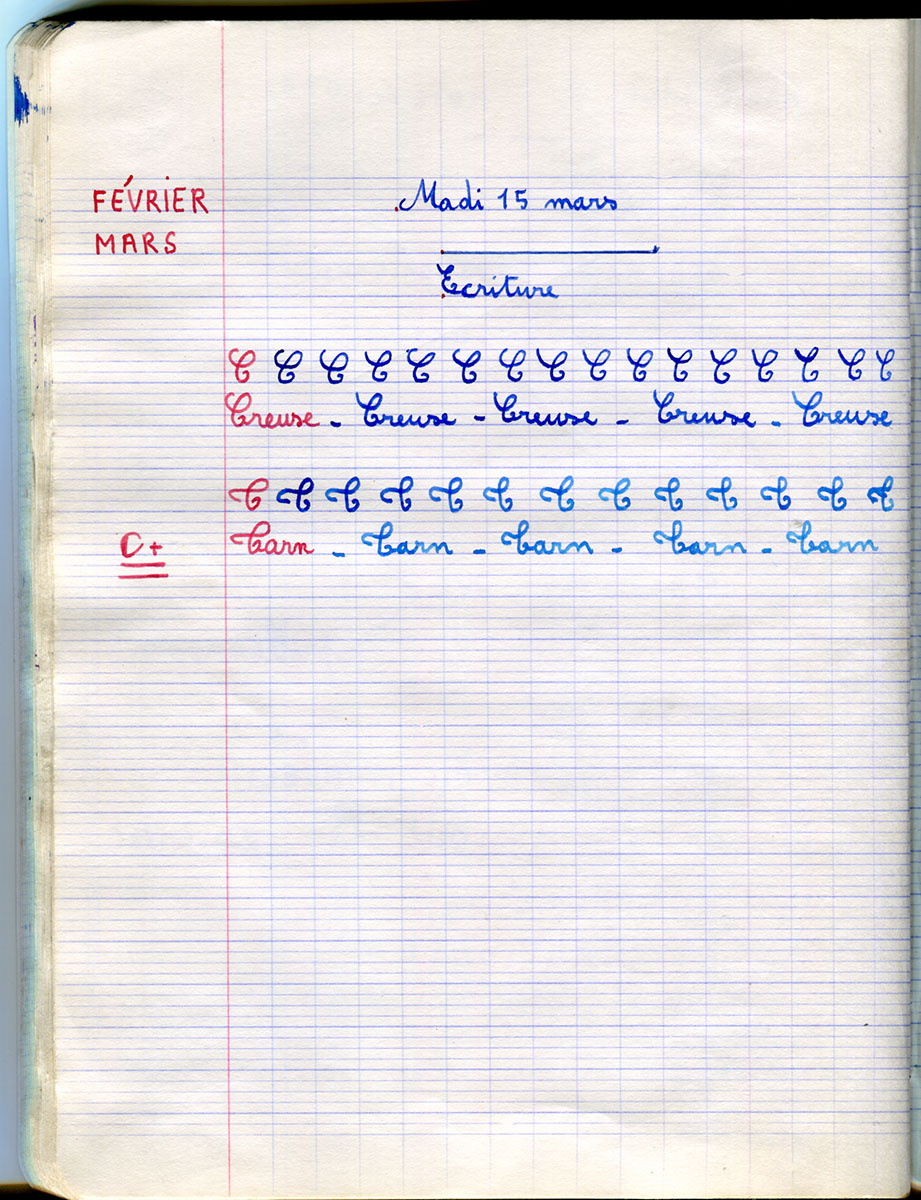 FÉVRIER
MARS
Madi 15 mars
Ecriture
C C C C C C C C C C C C C C C C
Creuse - Creuse - Creuse - Creuse - Creuse
T T T T T T T T T T T T T
C+
Tarn - Tarn - Tarn - Tarn - Tarn